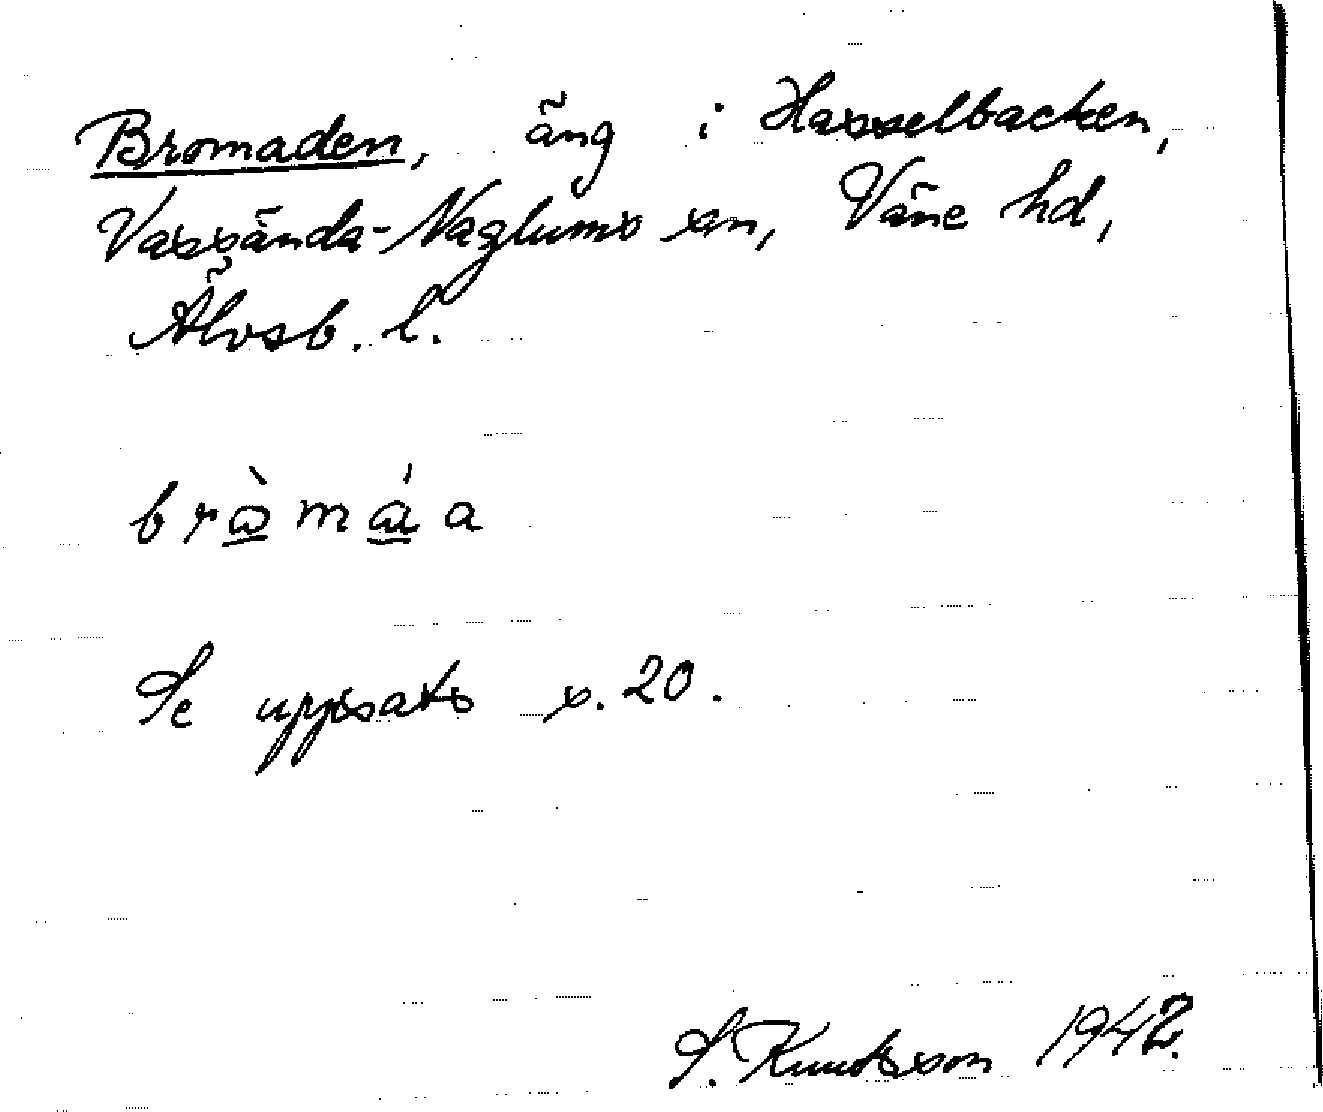 Bromaden, äng i Hasselbacken,
Vassända-Naglums sn, Väne hd,
Älvsb. l.
bròmáa
Se uppsats s. 20.
S. Knutsson 1942.